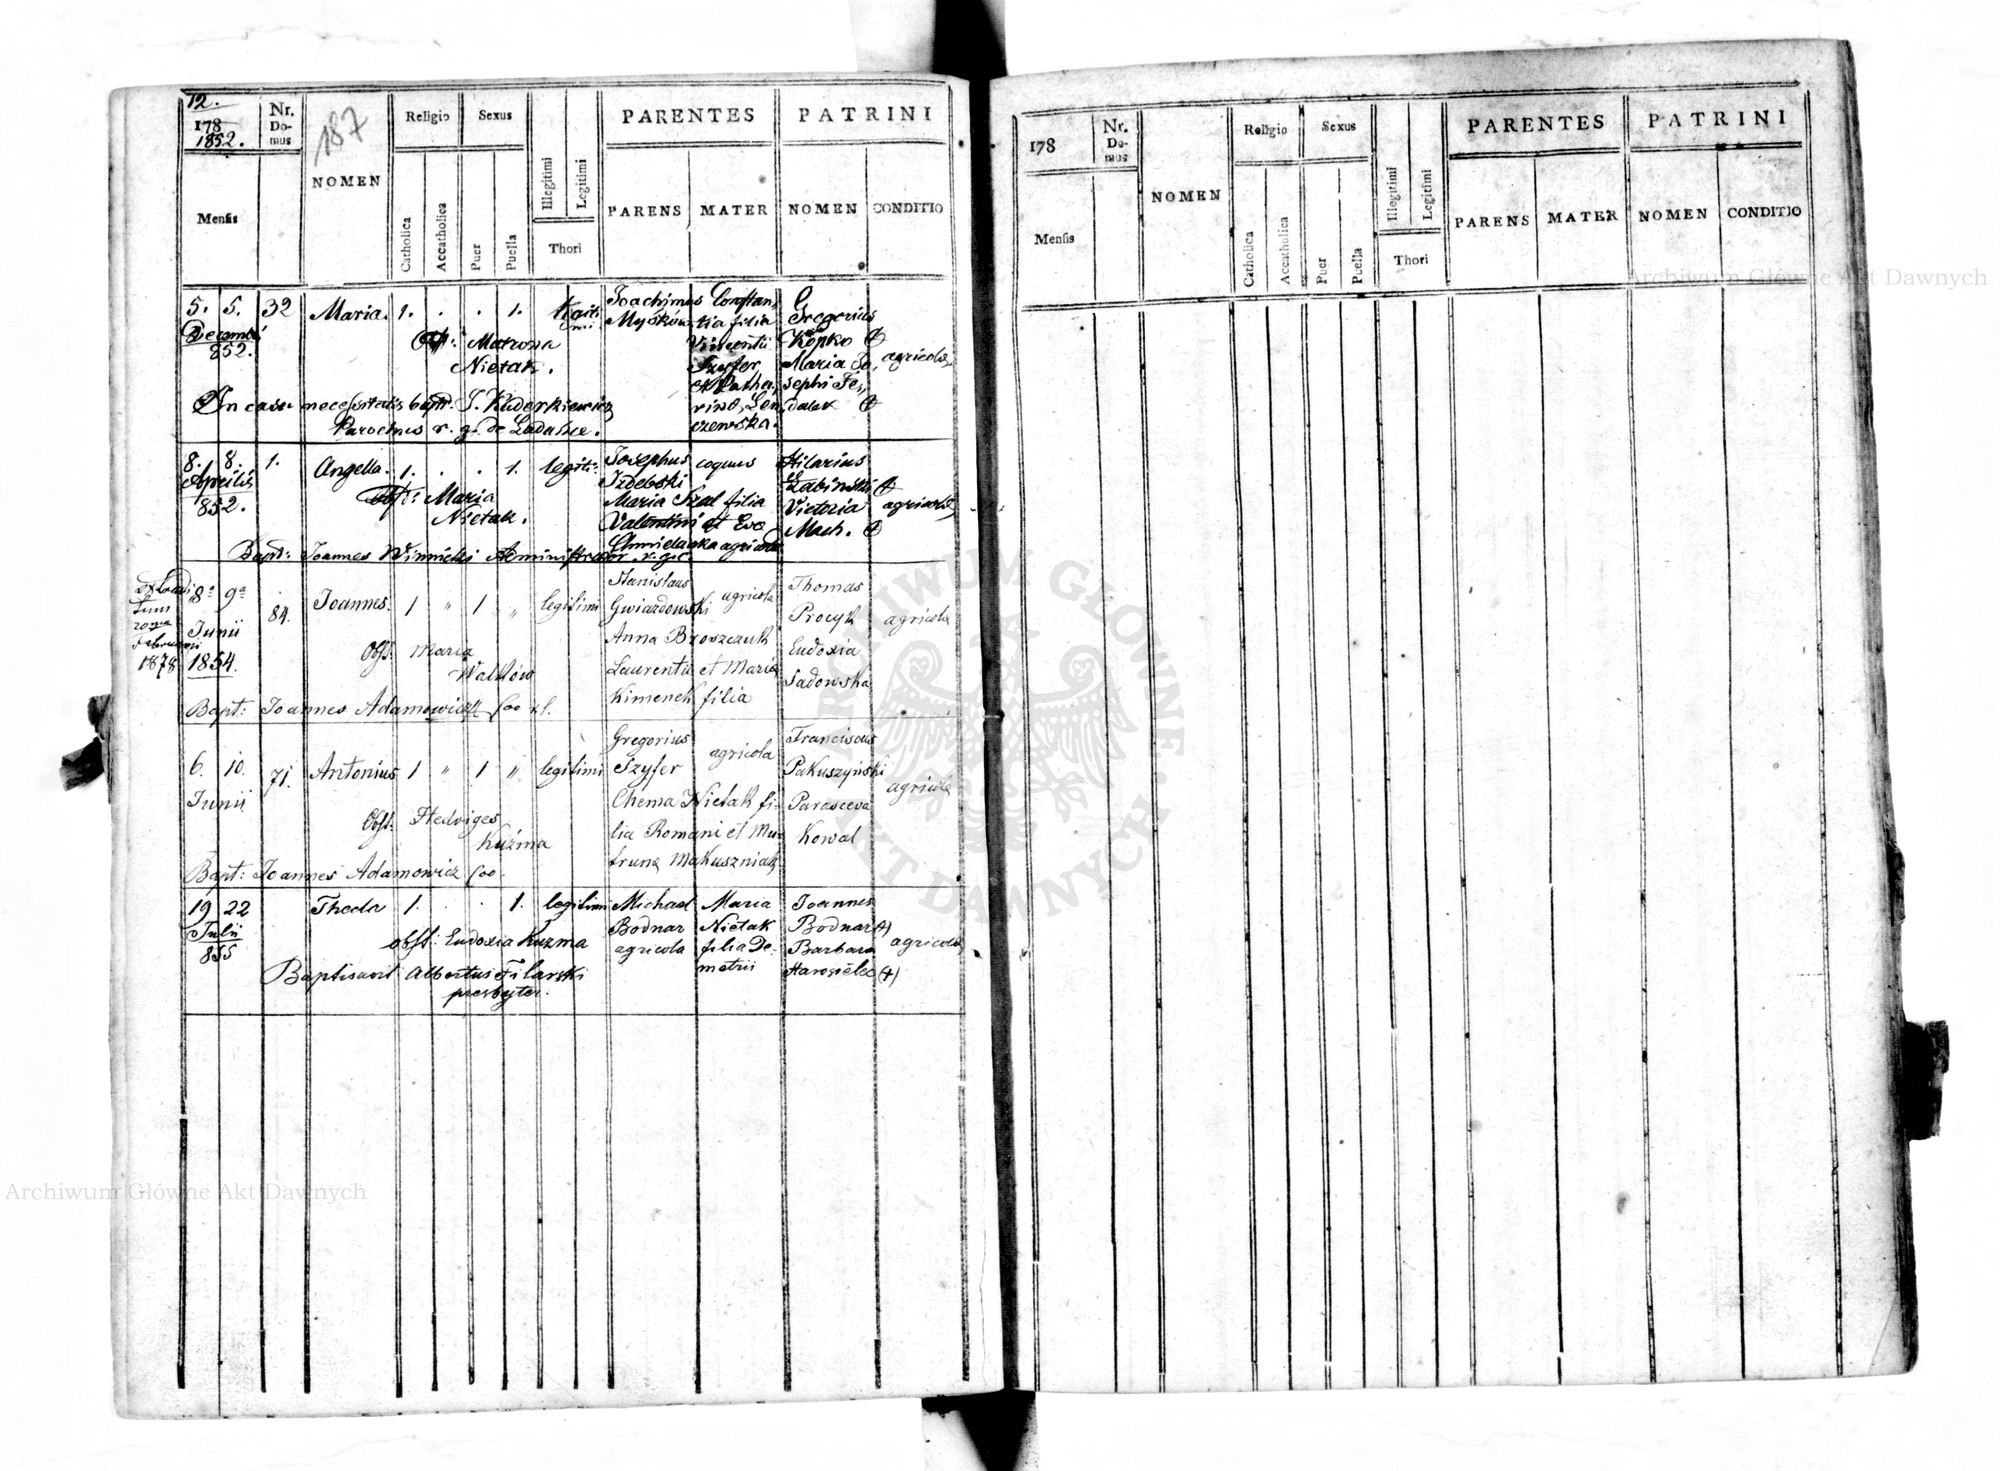 12.
178
1852.
Nr.
Do-
mus
187
NOMEN
Religio
Sexus
PARENTES
PATRINI
Mensis
Catholica
Accatholica
Puer
Puella
Illegitimi
Legitimi
Thori
PARENS
MATER
NOMEN
CONDITIO
5. 5. 32 Maria. 1. . . 1. legiti
mi
Joachimus Constan,
Myśków tia filia
Vincentii
Szyfer
et Catha,
rinæ Len,
czewska.
Gregorius
Kopko
Maria Jo,
sephi Fe,
dalak
agricolæ
Decembr
852.
Obst: Matrona
Nietak.
In casu necessitatis bapt. J. Kuderkiewicz
Parochus r. g. de
8. 8. 1. Angella. 1. . . 1. legiti:
Aprilis
852.
Obst: Maria
Nietak.
Josephus coquus
Izdebski
Maria Szal filia
Valentini et Eva
Chmielaska agricolæ
Hilarius
Łabinski
Victoria
Mach.
agricolæ
Bapt: Joannes Winnicki Administrator r. g. c.
extradi
tum
Februarii
1878
8a 9a 84. Joannes. 1 " 1 " legitimi
Junii
1854.
Obst. Maria
Walków
Stanislaus
Gwiazdowski agricola
Anna Broszczuk
Laurentii et Mariæ
Kimenek filia
Thomas
Procyk
Eudoxia
Sadowska
agricolæ
Bapt: Joannes Adamowicz Coo
6. 10. 71. Antonius 1 " 1 " legitimi
Junii
Obst: Hedviges
Kuźma
Gregorius
Szyfer agricola
Chema Nietak fi-
lia Romani et Ma-
trunæ Makuszniak
Franciscus
Pakuszyński
Parasceva
Kowal
agricolæ
Bapt: Joannes Adamowicz Coo.
19 22 Thecla 1. . . 1. legitimi
Julii
855
obst: Eudoxia Kuzma
Michael
Bodnar
agricola
Maria
Nietak
filia De-
metrii
Joannes
Bodnar (+)
Barbara
Harosielec (+)
agricolæ
Baptisavit Albertus Filarski
presbyter.
178
Nr.
Do-
mus
NOMEN
Religio
Sexus
PARENTES
PATRINI
Mensis
Catholica
Accatholica
Puer
Puella
Illegitimi
Legitimi
Thori
PARENS
MATER
NOMEN
CONDITIO
Archiwum Główne Akt Dawnych
ARCHIWUM GŁÓWNE AKT DAWNYCH
Archiwum Główne Akt Dawnych